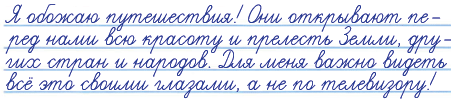 Я обожаю путешествия! Они открывают пе-
ред нами всю красоту и прелесть Земли, дру-
гих стран и народов. Для меня важно видеть
всё это своими глазами, а не по телевизору!